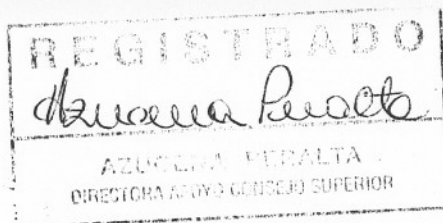 REGISTRADO
Azucena Peralta
AZUCENA PERALTA
DIRECTORA APOYO CONSEJO SUPERIOR